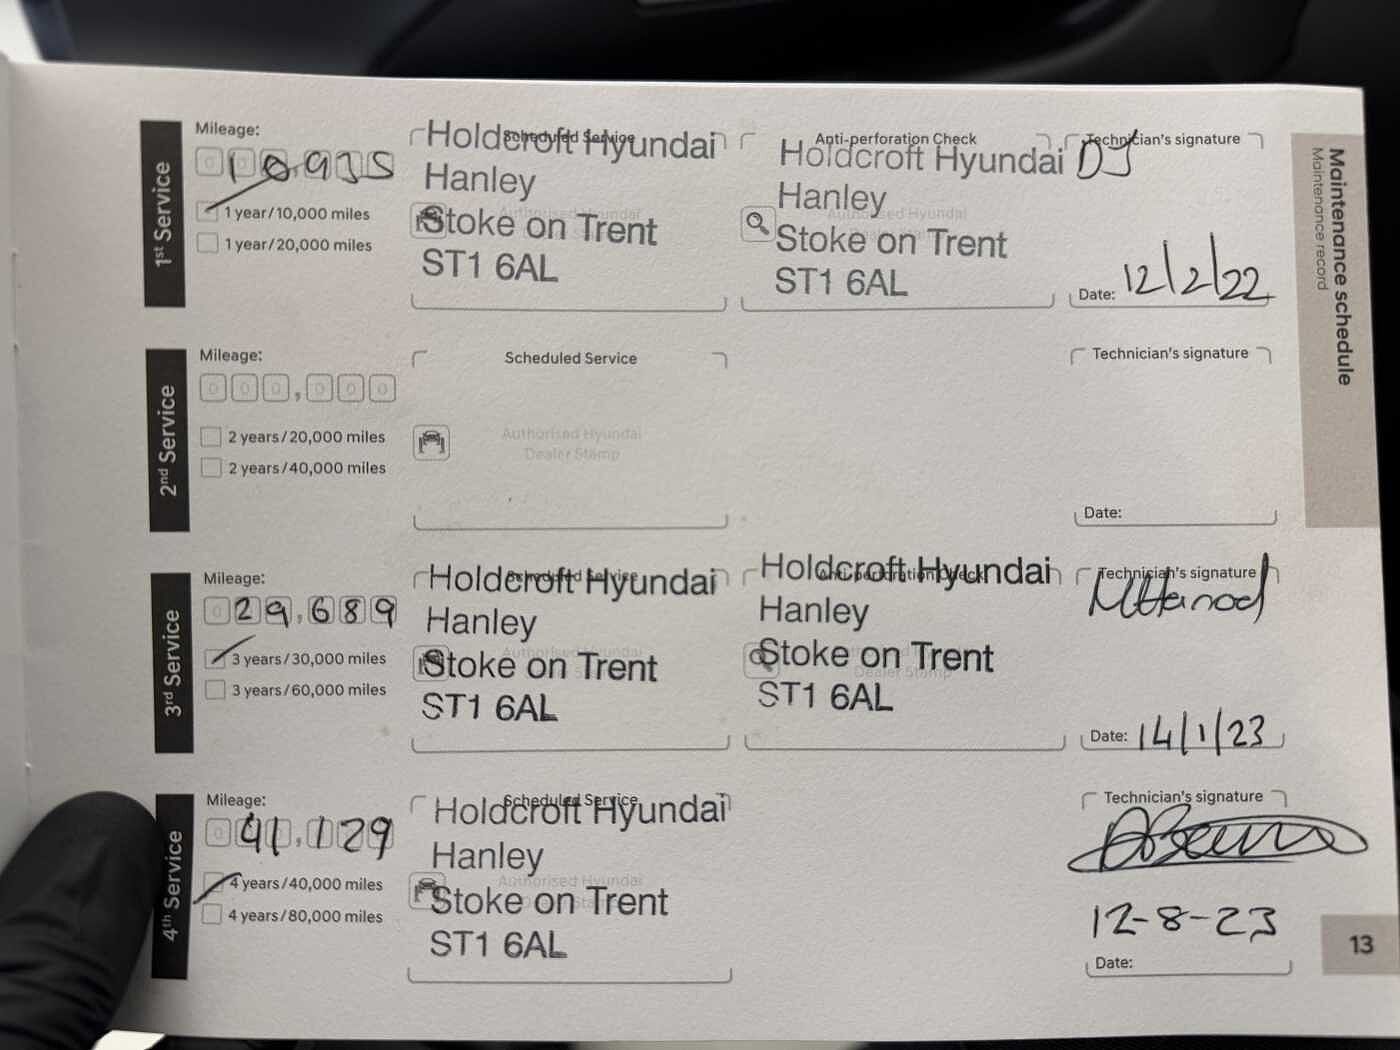 Maintenance schedule
Maintenance record
1st Service
Mileage:
10,935
1 year/10,000 miles
1 year/20,000 miles
Scheduled Service
Holdcroft Hyundai
Hanley
Stoke on Trent
ST1 6AL
Anti-perforation Check
Holdcroft Hyundai
Hanley
Stoke on Trent
ST1 6AL
Authorised Hyundai
Technician's signature
DJ
Date: 12/2/22
2nd Service
Mileage:
000,000
2 years/20,000 miles
2 years/40,000 miles
Scheduled Service
Authorised Hyundai
Dealer Stamp
Technician's signature
Date:
3rd Service
Mileage:
029,689
3 years/30,000 miles
3 years/60,000 miles
Scheduled Service
Holdcroft Hyundai
Hanley
Stoke on Trent
ST1 6AL
Anti-perforation Check
Holdcroft Hyundai
Hanley
Stoke on Trent
ST1 6AL
Dealer Stamp
Technician's signature
Date: 14/1/23
4th Service
Mileage:
041,129
4 years/40,000 miles
4 years/80,000 miles
Scheduled Service
Holdcroft Hyundai
Hanley
Stoke on Trent
ST1 6AL
Authorised Hyundai
Technician's signature
12-8-23
Date:
13